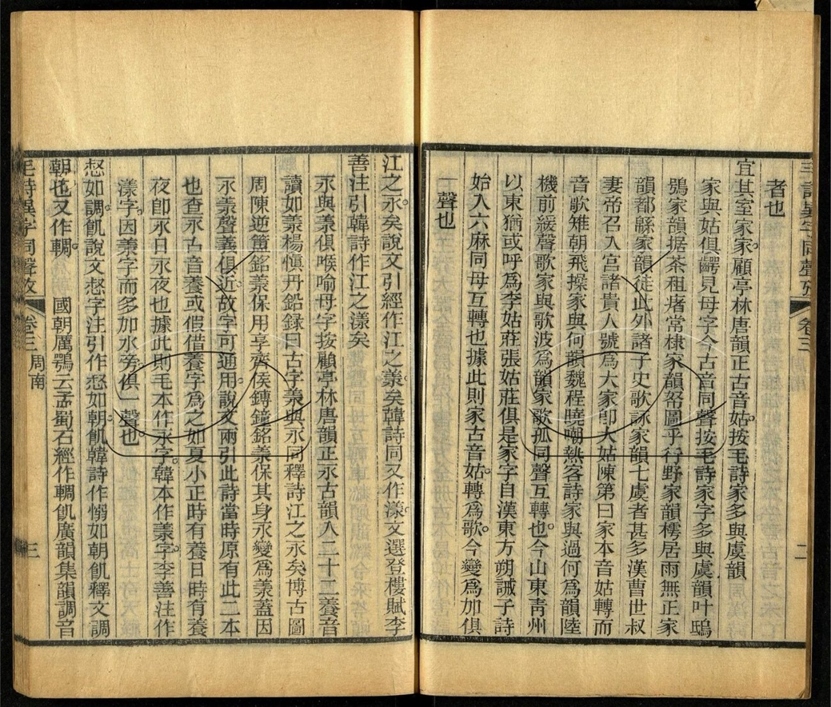 毛詩異字同聲攷
卷三
二
者也
宜其室家家顧亭林唐韻正古音姑按毛詩家多與虞韻
家與姑俱齶見母字今古音同聲按毛詩家字多與虞韻叶鴟
鴞家韻据荼租瘏常棣家韻帑圖乎行野家韻樗居雨無正家
韻都緜家韻徒此外諸子史歌詠家韻七虞者甚多漢曹世叔
妻帝召入宮諸貴人號爲大家卽大姑陳第曰家本音姑轉而
音歌雉朝飛操家與何韻魏程曉嘲熱客詩家與過何爲韻陸
機前緩聲歌家與歌波爲韻家歌孤同聲互轉也今山東靑州
以東猶或呼爲李姑莊張姑莊俱是家字自漢東方朔誡子詩
始入六麻同母互轉也據此則家古音姑轉爲歌今變爲加俱
一聲也
江之永矣說文引經作江之羕矣韓詩同又作漾文選登樓賦李
善注引韓詩作江之漾矣
永與羕俱喉喻母字按顧亭林唐韻正永古韻入二十二養音
讀如羕楊愼丹鉛錄曰古字羕與永同釋詩江之永矣博古圖
周陳逆簠銘羕保用享齊侯鎛鐘銘羕保其身永變爲羕蓋因
永羕聲義俱近故字可通用說文兩引此詩當時原有此二本
也查永古音養或假借養字爲之如夏小正時有養日時有養
夜卽永日永夜也據此則毛本作永字韓本作羕字李善注作
漾字因羕字而多加水旁俱一聲也
惄如調飢說文惄字注引作惄如朝飢韓詩作愵如朝飢釋文調
朝也又作輖　國朝厲鶚云孟蜀石經作輖飢廣韻集韻調音
毛詩異字同聲攷
卷三
周南
三